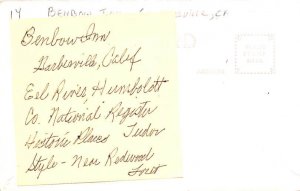 14 BENBOW INN
Benbow Inn
Garberville, Calif
Eel River, Humboldt
Co. National Register
Historic Places Tudor
Style - Near Redwood
Forest